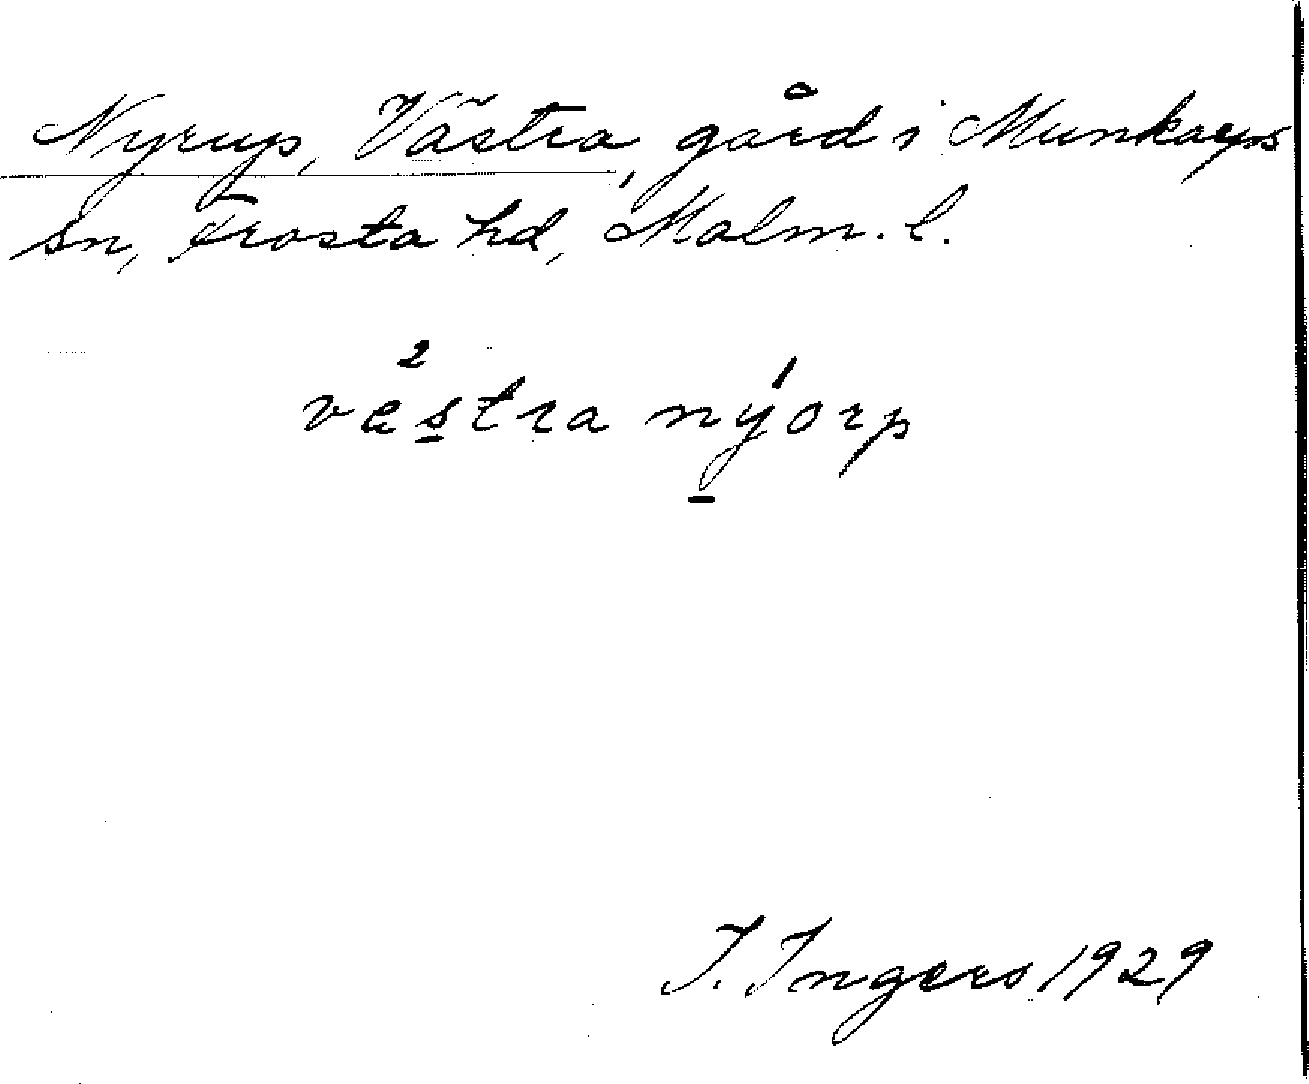 Nyrup, Västra, gård i Munkarps
sn, Frosta hd, Malm. l.
västra nýorp
I. Ingers 1929